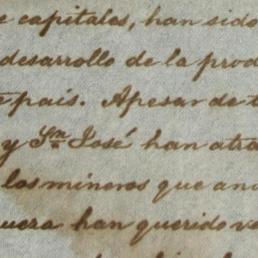 e capitales, han sido
desarrollo de la prod
e país. Apesar de t
y Sn. José han atra
los mineros que an
uera han querido ve